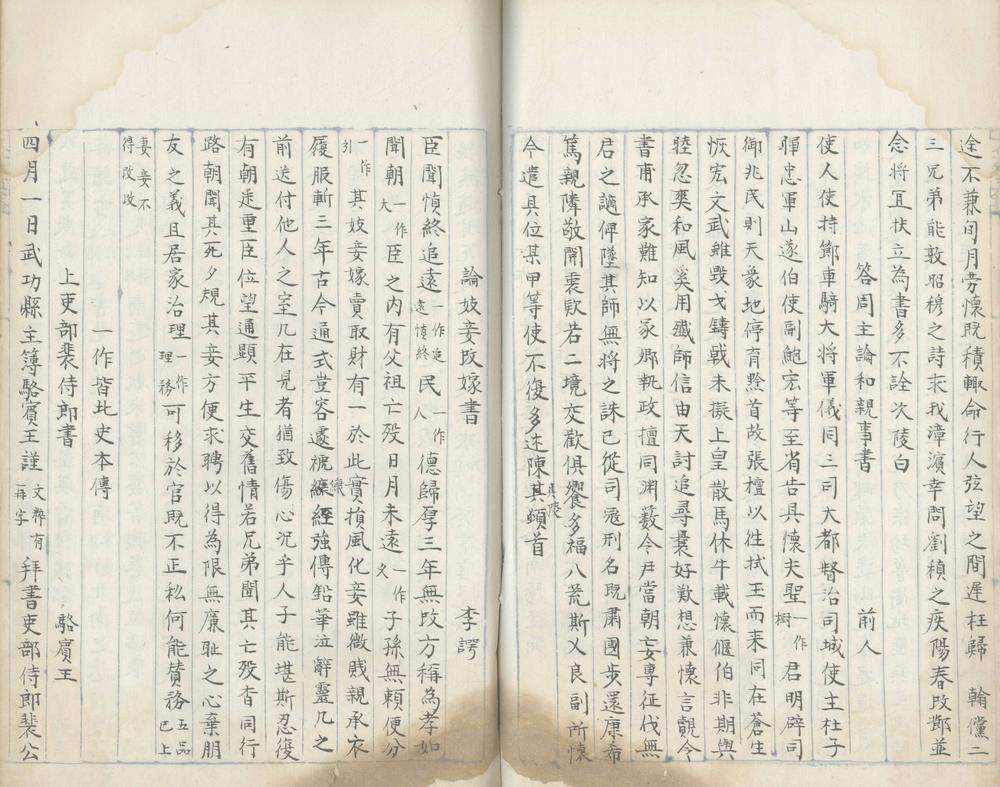 途不兼旬月勞懷既積輙命行人弦望之間遲枉歸翰儻二
三兄弟能敦昭穆之詩求我漳濱幸問劉楨之疾陽春改鄴並
念將宜扶立為書多不詮次陵白
答周主論和親事書 前人
使人使持節車騎大將軍儀同三司大都督治司城使主杜子
暉忠軍山遂伯使副鮑宏等至省告具懷夫聖一作樹君明辟司
御兆民則天象地停育黔首故張檀以往拭玉而來同在蒼生
恢宏文武雖毀戈鑄戟未擬上皇散馬休牛載懷偃伯非期輿
睦忽爽和風奚用殲師信由天討追尋曩好歎想兼懷言覿今
書甫承家難知以冢卿執政擅同淵藪令尹當朝妄專征伐無
君之謫俾墜其師無將之誅已從司寇刑名既肅國步還康希
篤親隣敬開衷欵若二境交歡俱饗多福八荒斯乂良副所懷
今遣具位某甲等使不復多述陳其頊首
論妓妾改嫁書 李諤
臣聞慎終追遠一作追遠慎終民一作人德歸厚三年無改方稱為孝如
聞朝一作大臣之內有父祖亡歿日月未遠一作久子孫無賴便分
一作引其妓妾嫁賣取財有一於此實損風化妾雖微賤親承衣
履服斬三年古今通式豈容遽褫縗絰強傅鉛華泣辭靈几之
前送付他人之室凡在見者猶致傷心況乎人子能堪斯忍復
有朝廷重臣位望通顯平生交舊情若兄弟聞其亡歿杳同行
路朝聞其死夕規其妾方便求聘以得為限無廉恥之心棄朋
友之義且居家治理一作理務可移於官既不正私何能贊務五品已上
妻妾不得改改
一作皆北史本傳
上吏部裴侍郎書 駱賓王
四月一日武功縣主簿駱賓王謹文粹有再字拜書吏部侍郎裴公